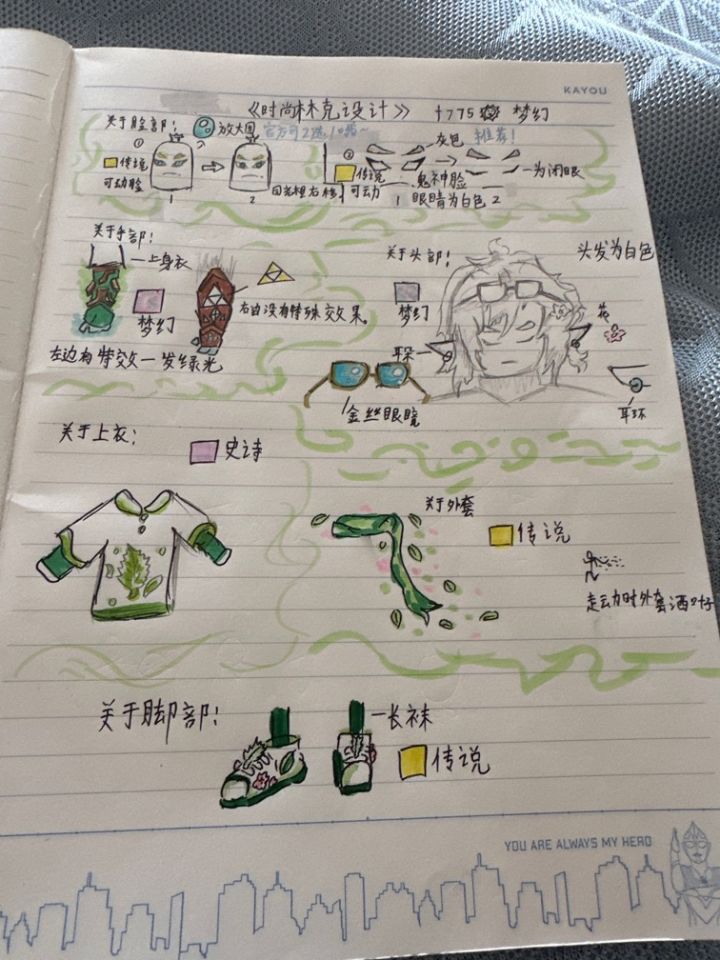 KAYOU
《时尚林克设计》 1775 梦幻
关于脸部： 放大图 官方可2选1哦~
① ②
传说
可动脸
1 2
②
传说
可动
灰色 推荐！
鬼神脸
一为闭眼
1 眼睛为白色 2
关于手部：
上身衣
梦幻
右边没有特殊效果。
左边有特效一发绿光
关于头部：
头发为白色
梦幻
花
耳朵
耳环
金丝眼镜
关于上衣：
史诗
关于外套
传说
走云力时外套洒叶
关于脚部：
长袜
传说
YOU ARE ALWAYS MY HERO